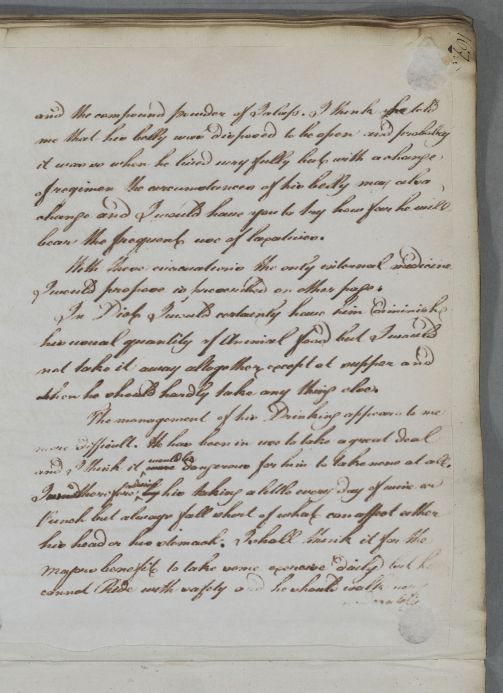 107
and the compound powder of Jalap. I think he told
me that his belly were disposed to be open and probably
it was so when he lived very fully but with a change
of regimen the circumstances of his belly may also
change and I would have you to try how far he will
bear the frequent use of Lapatives.
With these evacuations the only internal medicine
I would propose is prescribed on other page.
In Diet I would certainly have him diminish
his usual quantity of Animal food but I would
not take it away altogether except at supper and
then he should hardly take any thing else.
The management of his Drinking appears to me
more difficult. He has been in use to take a great deal
and I think it would be dangerous for him to take none at all.
I therefore advise his taking a little every day of wine or
Punch but always fall short of what can affect either
his head or his stomach. I shall think it for the
Majors benefit to take some exercise daily but he
cannot Ride with safety and he should walk very
moderately